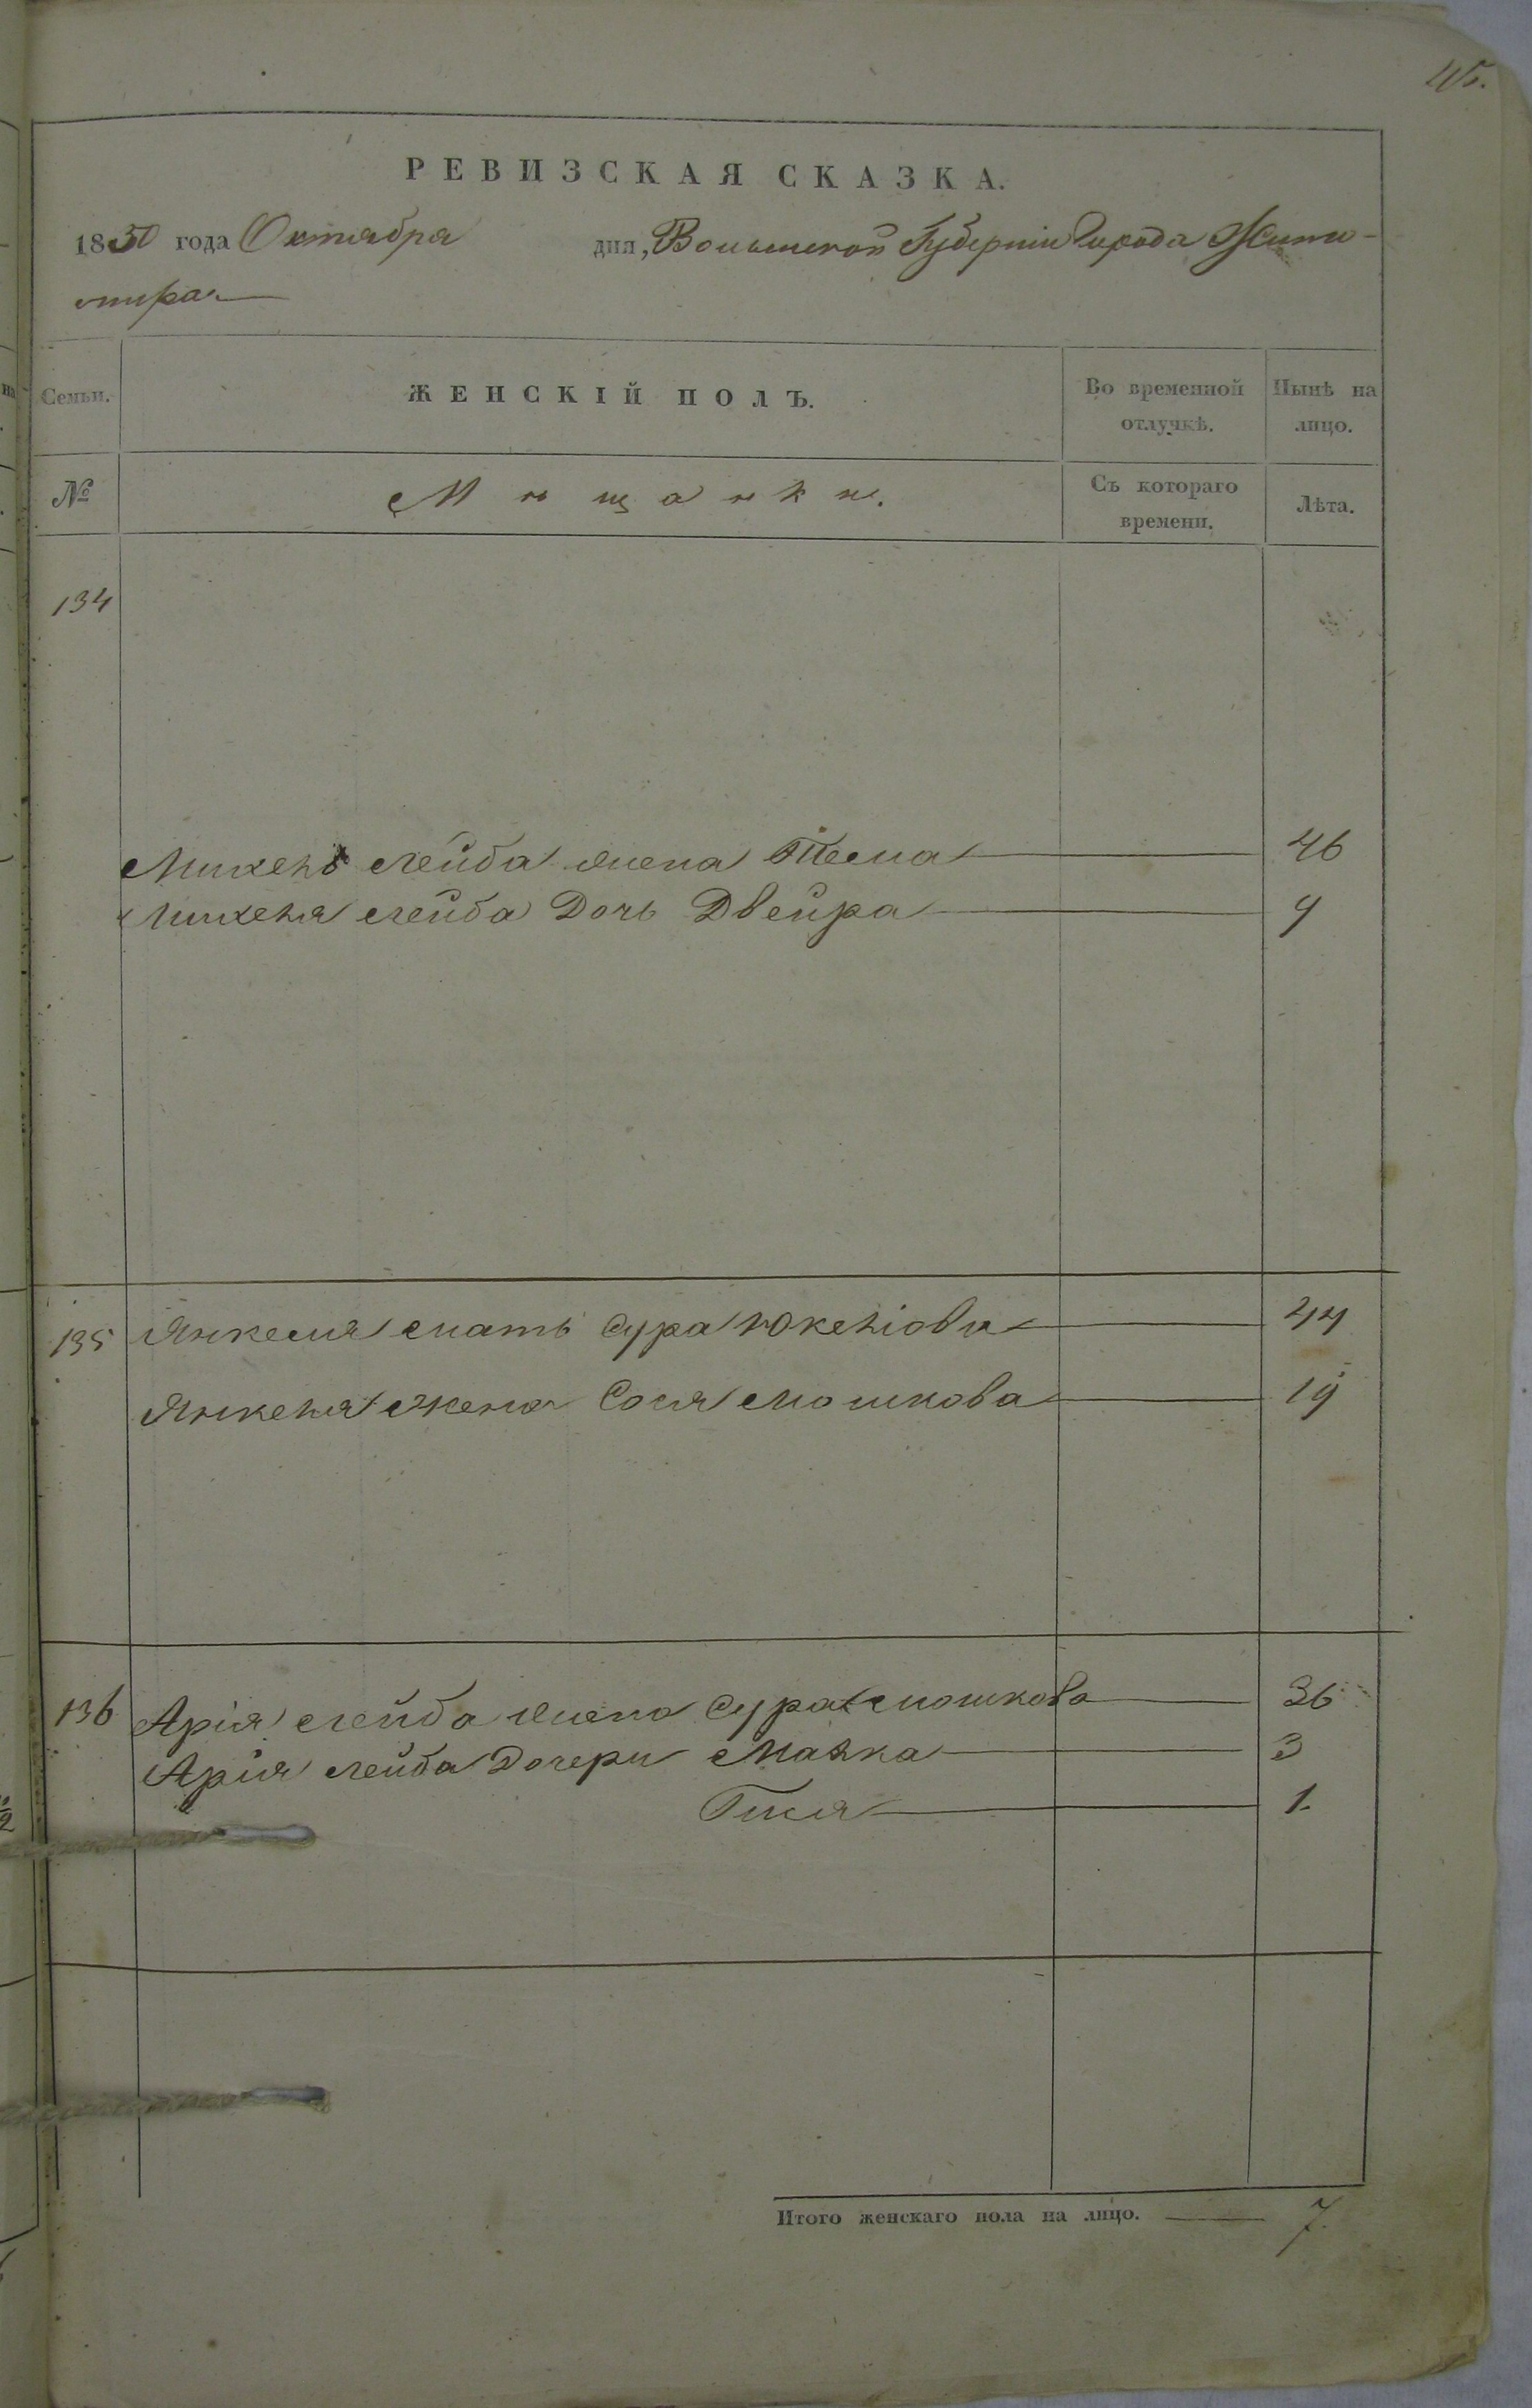 45.
РЕВИЗСКАЯ СКАЗКА.
1850 года Октября дня, Волынской Губерніи Города Жито-
мира
Семьи.
ЖЕНСКІЙ ПОЛЪ.
Во временной отлучкѣ.
Нынѣ на лицо.
№
Мѣщанки.
Съ котораго времени.
Лѣта.
134
Михель Лейба жена 46
Михеля Лейба Дочь Двейра 9
135 Янкеля мать Сура Юкеліова 44
Янкеля жена Сося Мошкова 19
136 Арія Лейба жена Сура Мошкова 36
Арія Лейба Дочери Малка 3
Гися 1
Итого женскаго пола на лицо. 7.